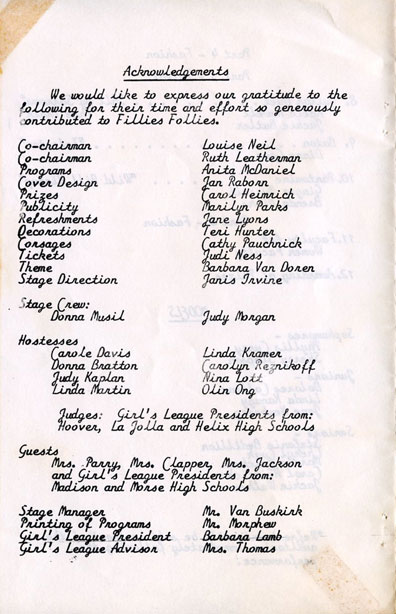 Acknowledgements
We would like to express our gratitude to the
following for their time and effort so generously
contributed to Fillies Follies.
Co-chairman Louise Neil
Co-chairman Ruth Leatherman
Programs Anita McDaniel
Cover Design Jan Raborn
Prizes Carol Heimrich
Publicity Marilyn Parks
Refreshments Jane Lyons
Decorations Teri Hunter
Corsages Cathy Pauchnick
Tickets Judi Ness
Theme Barbara Van Doren
Stage Direction Janis Irvine
Stage Crew:
Donna Musil Judy Morgan
Hostesses
Carole Davis Linda Kramer
Donna Bratton Carolyn Reznikoff
Judy Kaplan Nina Lott
Linda Martin Olin Ong
Judges: Girl's League Presidents from:
Hoover, La Jolla and Helix High Schools
Guests
Mrs. Parry, Mrs. Clapper, Mrs. Jackson
and Girl's League Presidents from:
Madison and Morse High Schools
Stage Manager Mr. Van Buskirk
Printing of Programs Mr. Morphew
Girl's League President Barbara Lamb
Girl's League Advisor Mrs. Thomas